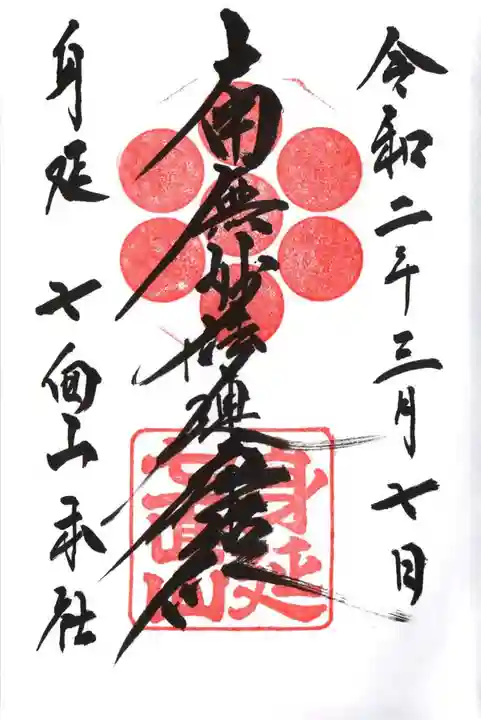 令和二年三月七日
南無妙法蓮華経
身延 七面山本社
身延
七面山